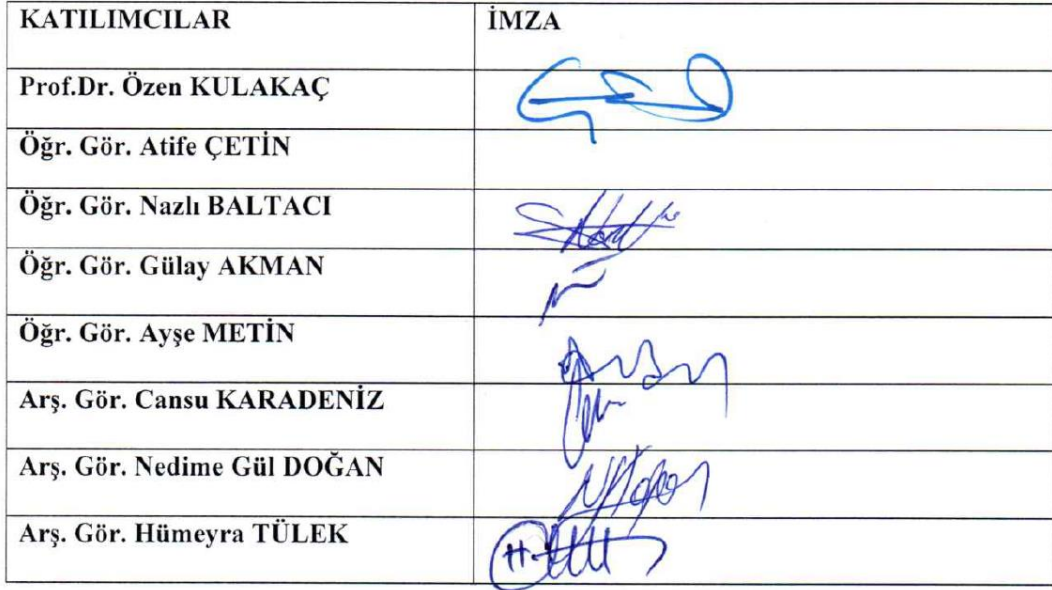 KATILIMCILAR İMZA
Prof.Dr. Özen KULAKAÇ
Öğr. Gör. Atife ÇETİN
Öğr. Gör. Nazlı BALTACI
Öğr. Gör. Gülay AKMAN
Öğr. Gör. Ayşe METİN
Arş. Gör. Cansu KARADENİZ
Arş. Gör. Nedime Gül DOĞAN
Arş. Gör. Hümeyra TÜLEK